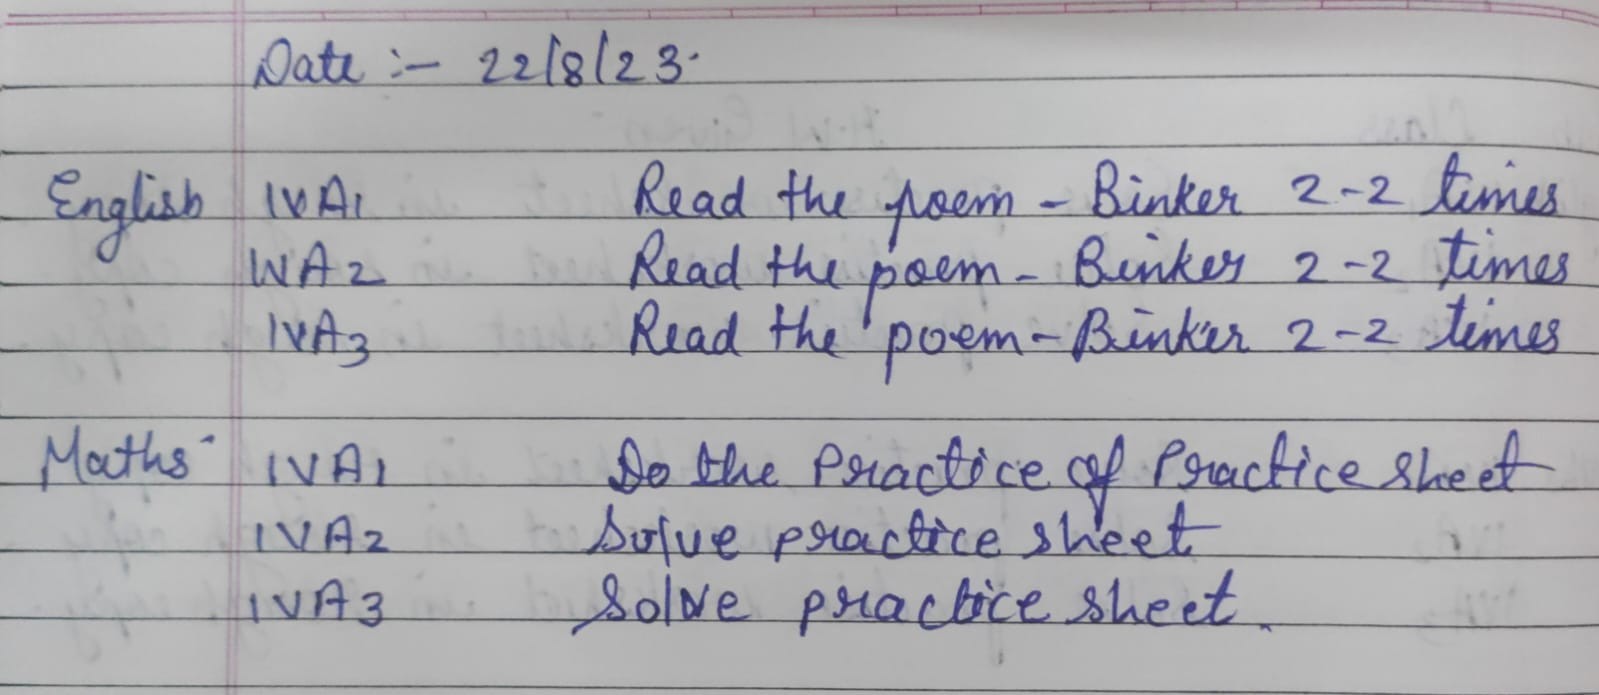 Date :- 22/8/23.
English IVA1 Read the poem - Binker 2-2 times
IVA2 Read the poem - Binker 2-2 times
IVA3 Read the poem - Binker 2-2 times
Maths IVA1 Do the Practice of Practice sheet
IVA2 Solve practice sheet
IVA3 Solve practice sheet.